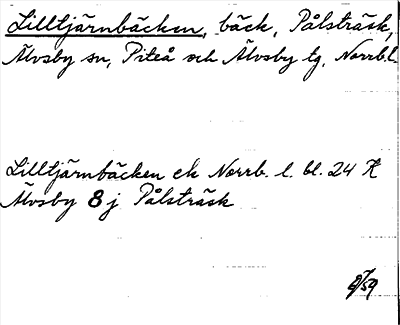 Lilltjärnbäcken, bäck, Pålsträsk,
Älvsby sn, Piteå och Älvsby tg, Norrb.l.
Lilltjärnbäcken ek Norrb. l. bl. 24 K
Älvsby 8 j Pålsträsk
8/59